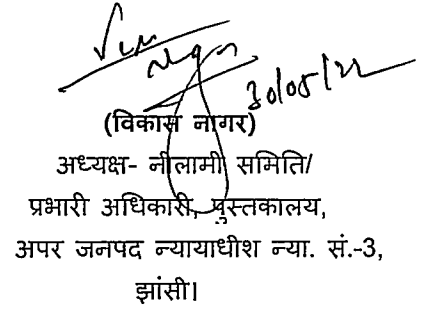 30/05/22
(विकास नागर)
अध्यक्ष- नीलामी समिति/
प्रभारी अधिकारी, पुस्तकालय,
अपर जनपद न्यायाधीश न्या. सं.-3,
झांसी।